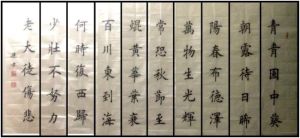 青青園中葵
朝露待日晞
陽春布德澤
萬物生光輝
常恐秋節至
焜黃華葉衰
百川東到海
何時復西歸
少壯不努力
老大徒傷悲